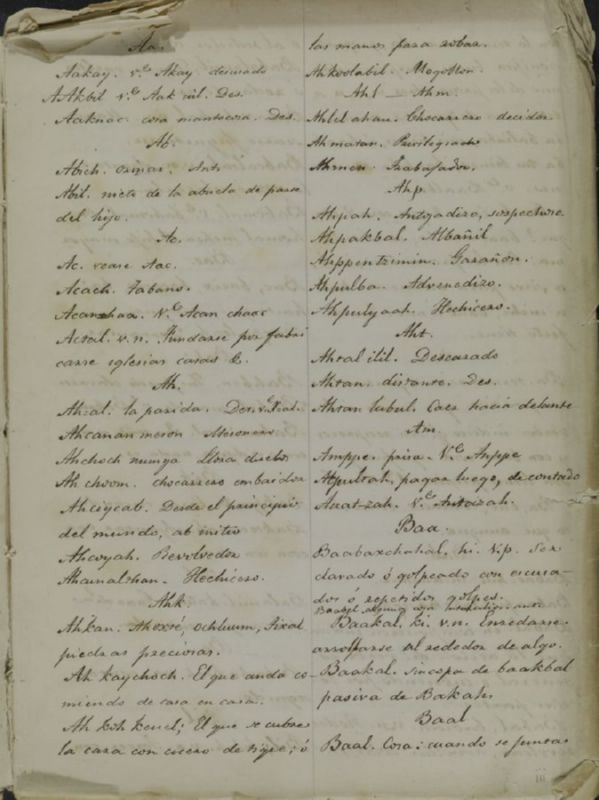 Aa.
Aakay. v.e Akay desusado
AAkbil v.e Aak mil. Des.
Aaknac. cosa mantecosa. Des.
Ab
Abich. orinar. Ant.
Abil. nieto de la abuela de parte
del hijo.
Ac.
Ac. vease Aac.
Acach. tabano.
Acanchaa. V.e Acan chaac
Actal. v.n. Fundarse por fabri
carse iglesias casas &.
Ah.
Ahcal. la parida.
Ahcanan meson Mesonero
Ahchoch nunya
Ah choom. chocarrero embaidor
Ahciycat. Desde el principio
del mundo, ab initio
Ahcoyah. Revolvedor
Ahcunalthan. Hechicero.
Ahk
Ahkan.
piedras preciosas.
Ah kaychoch. El que anda co-
miendo de casa en casa.
Ah koh keuel; El que se cubre
la cara con cuero de tigre; ó
las manos para robar.
Ahkoolabil.
Ahl — Ahm.
Chocarrero decidor
Ahmatan. Privilegiado
Ahmen. Trabajador.
Ahp
Ahpah. Antojadizo, sospechoso.
Ahpakbal. Albañil
Ahppentzimin. Garañon.
Ahpulba. Advenedizo.
Ahpulyaah. Hechicero.
Aht.
Descarado
Ahtan. distante. Des.
Ahtan lubul. Caer hacia delante
Am.
Amppe. prisa. V.e Anppe
pagar luego, de contado
V.e
Baa
Baabaxchahal. hi. v.p. Ser
clavado ó golpeado con
dos ó repetidos golpes.
Baakal. ki. v.n. Enredarse.
arrollarse al rededor de algo.
Baakal. sincopa de baakbal
pasiva de Bakah
Baal
Baal. Cosa: cuando se juntas